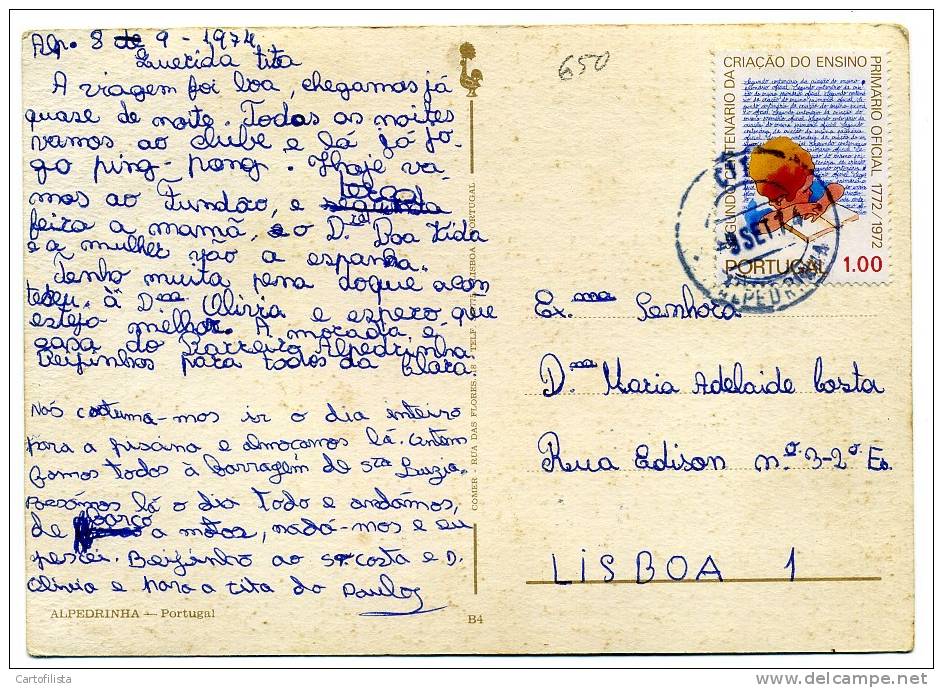 Alp. 8 de 9 - 1974
Querida tita
A viagem foi boa, chegamos já
quase de noite. Todas as noites
vamos ao clube e lá já jo-
go ping-pong. Hoje va-
mos ao Fundão, e terça
feira a mamã, e o D.r Boa Vida
e a mulher vão a espanha.
Tenho muita pena doque acon
teceu à D.na Olivia e espero que
esteja melhor. A morada é
casa do Barreiro Alpedrinha.
Beijinhos para todos da Clara.
Nós costuma-mos ir o dia inteiro
para a piscina e almoçamos lá. Ontem
fomos todos à barragem de Sta Luzia.
Passámos lá o dia todo e andámos,
de barco a motor, nadá-mos e eu
pesquei. Beijinho ao Sr. Costa e D.
Olivia e para a tita do Paulo
ALPEDRINHA — Portugal
B4
COMER RUA DAS FLORES, 18 TELF. LISBOA PORTUGAL
650
SEGUNDO CENTENÁRIO DA CRIAÇÃO DO ENSINO PRIMÁRIO OFICIAL 1772/1972
PORTUGAL 1.00
SET 74
ALPEDRINHA
Ex.ma Senhora
D.ma Maria Adelaide Costa
Rua Edison n.º 3-2º Eo.
LISBOA 1
Cartofilista
delcampe.net